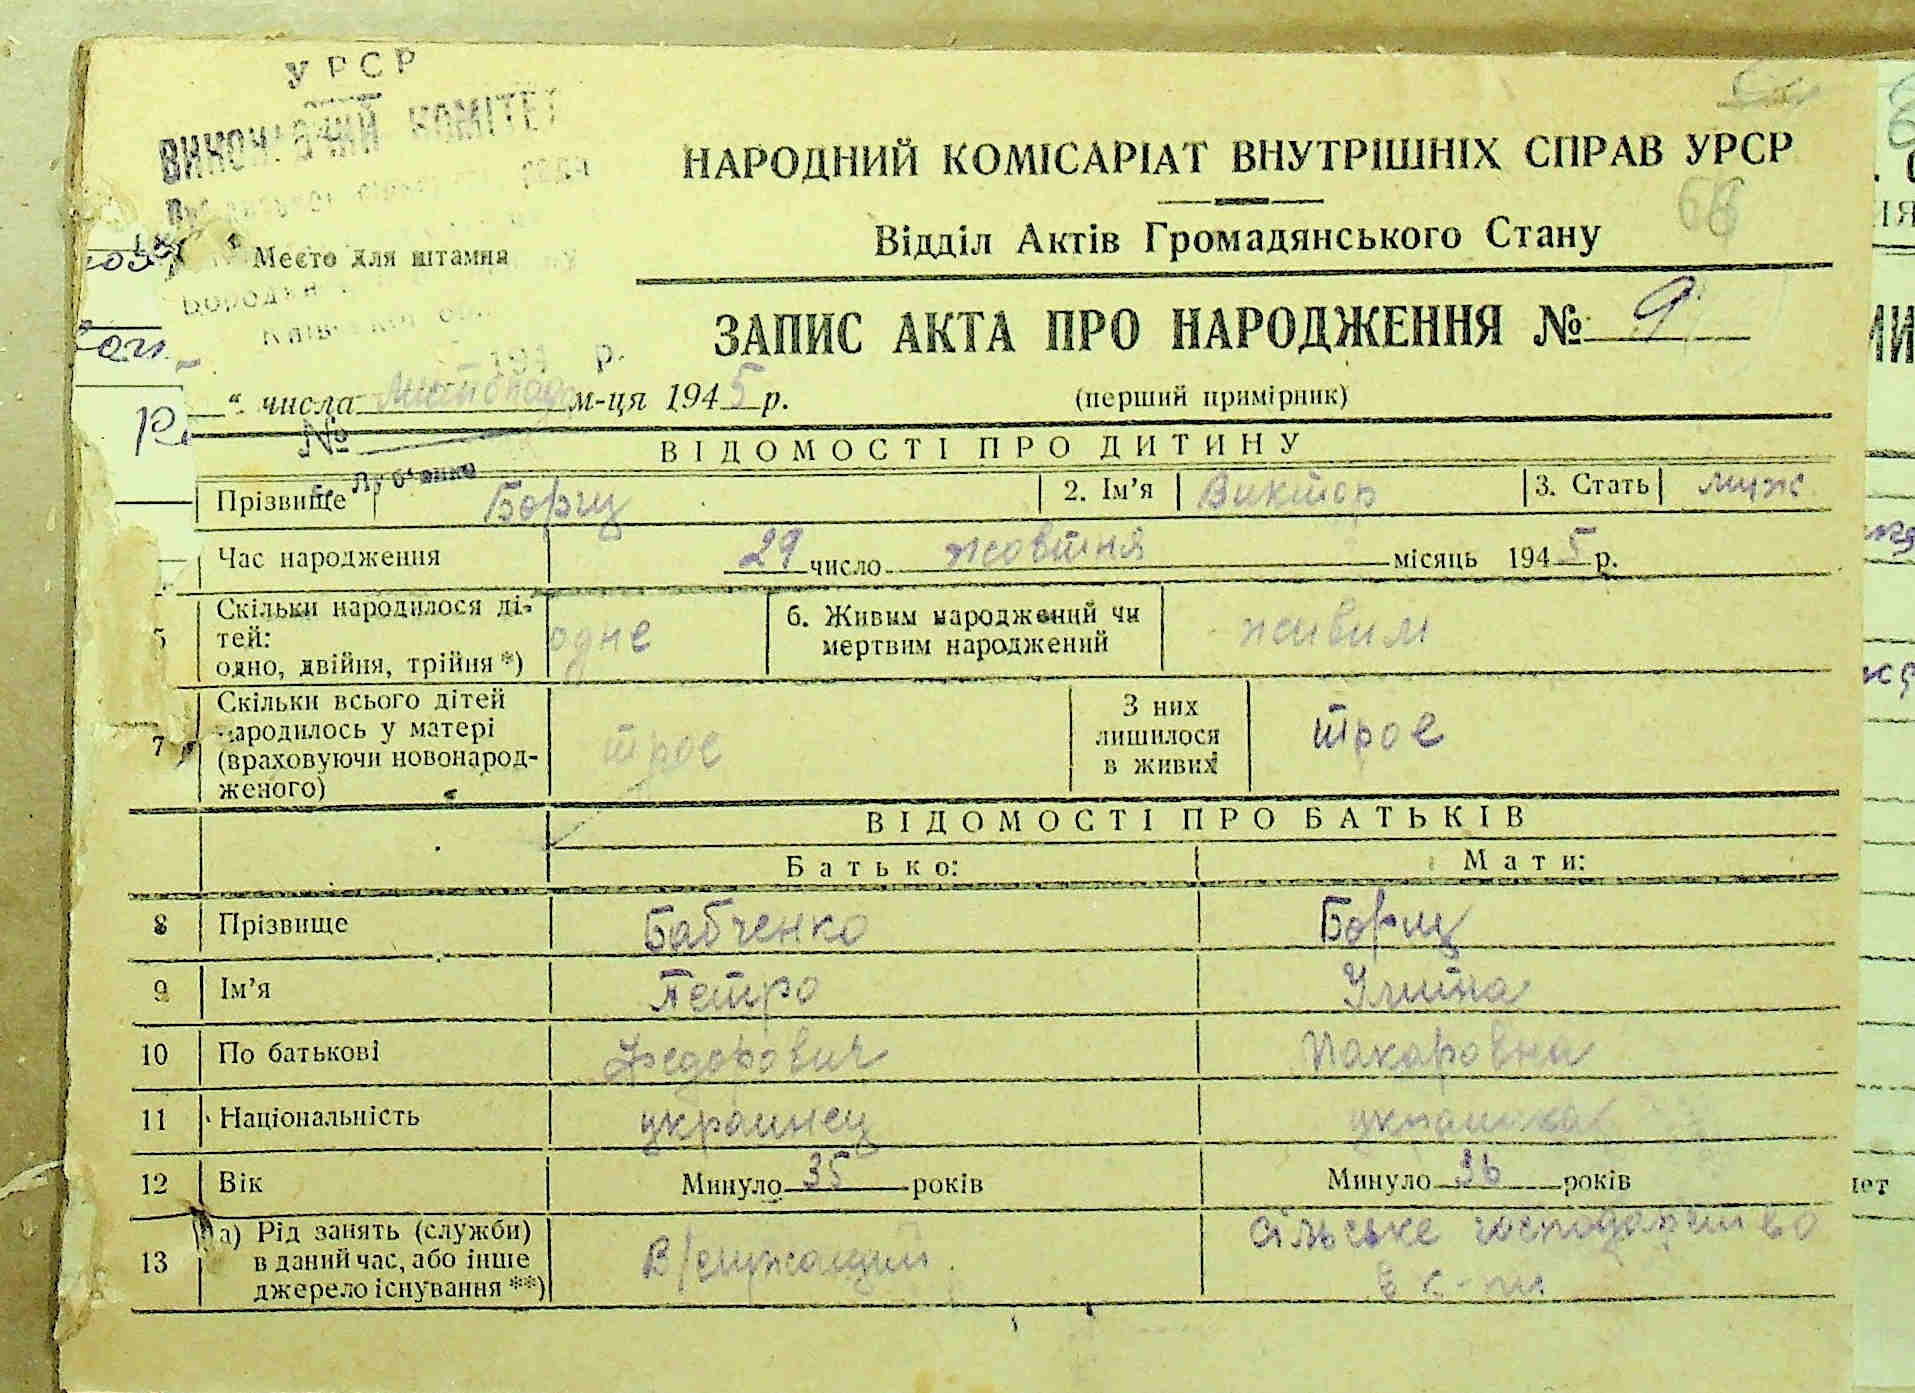 УРСР
ВИКОНАВЧИЙ КОМІТЕТ
НАРОДНИЙ КОМІСАРІАТ ВНУТРІШНІХ СПРАВ УРСР
66
Відділ Актів Громадянського Стану
Место для штампа
ЗАПИС АКТА ПРО НАРОДЖЕННЯ № 9
194 р.
“ числа листопад м-ця 1945 р.
(перший примірник)
№
ВІДОМОСТІ ПРО ДИТИНУ
с. Луб'янка
Прізвище Борщ 2. Ім'я Виктор 3. Стать муж
Час народження 29 число жовтня місяць 1945 р.
5 Скільки народилося ді-
тей:
одно, двійня, трійня *) одне 6. Живим народжений чи
мертвим народжений живим
7 Скільки всього дітей
народилось у матері
(враховуючи новонарод-
женого) троє З них
лишилося
в живих троє
ВІДОМОСТІ ПРО БАТЬКІВ
Батько: Мати:
8 Прізвище Бабченко Борщ
9 Ім'я Петро Улита
10 По батькові Федорович Макаровна
11 Національність украинец украинка
12 Вік Минуло 35 років Минуло 36 років
13 а) Рід занять (служби)
в даний час, або інше
джерело існування **) В/служащий сільське господарство